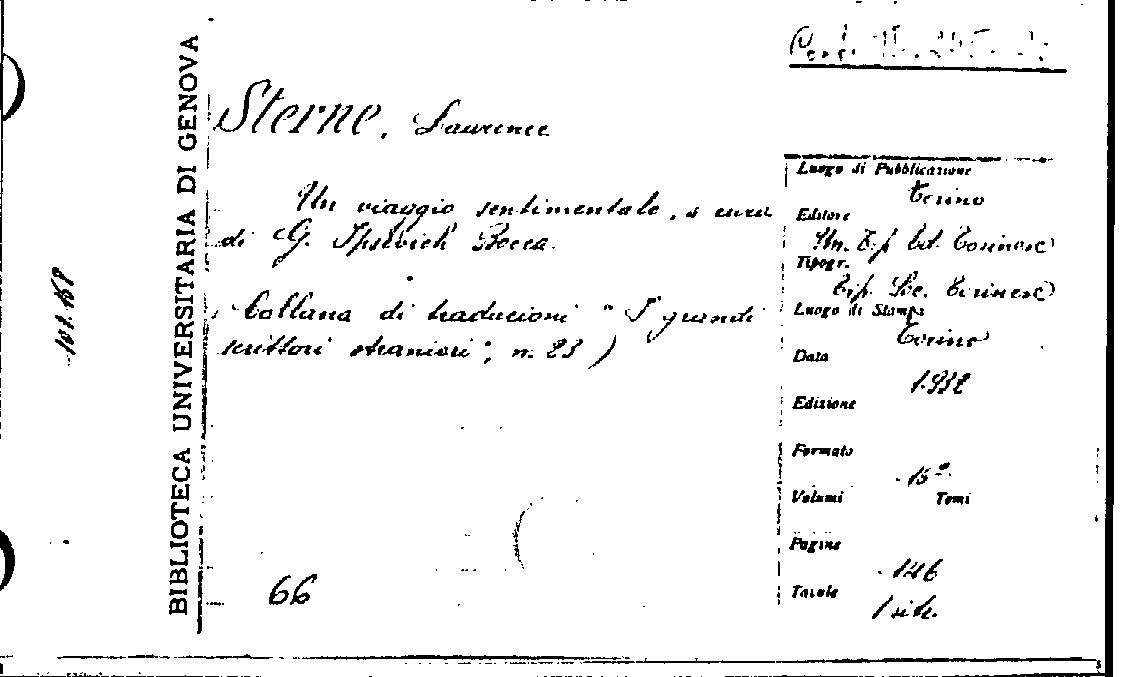 BIBLIOTECA UNIVERSITARIA DI GENOVA
Sterne, Laurence
Un viaggio sentimentale, a cura
di G. Ipswich Rocca.
(Collana di traduzioni "I grandi
scrittori stranieri", n. 23)
66
Luogo di Pubblicazione
Torino
Editore
Un. Tip. Ed. Torinese
Tipogr.
Tip. Soc. Torinese
Luogo di Stampa
Torino
Data
1932
Edizione
Formato
Volumi Tomi
Pagine
146
Tavole
1 ritr.